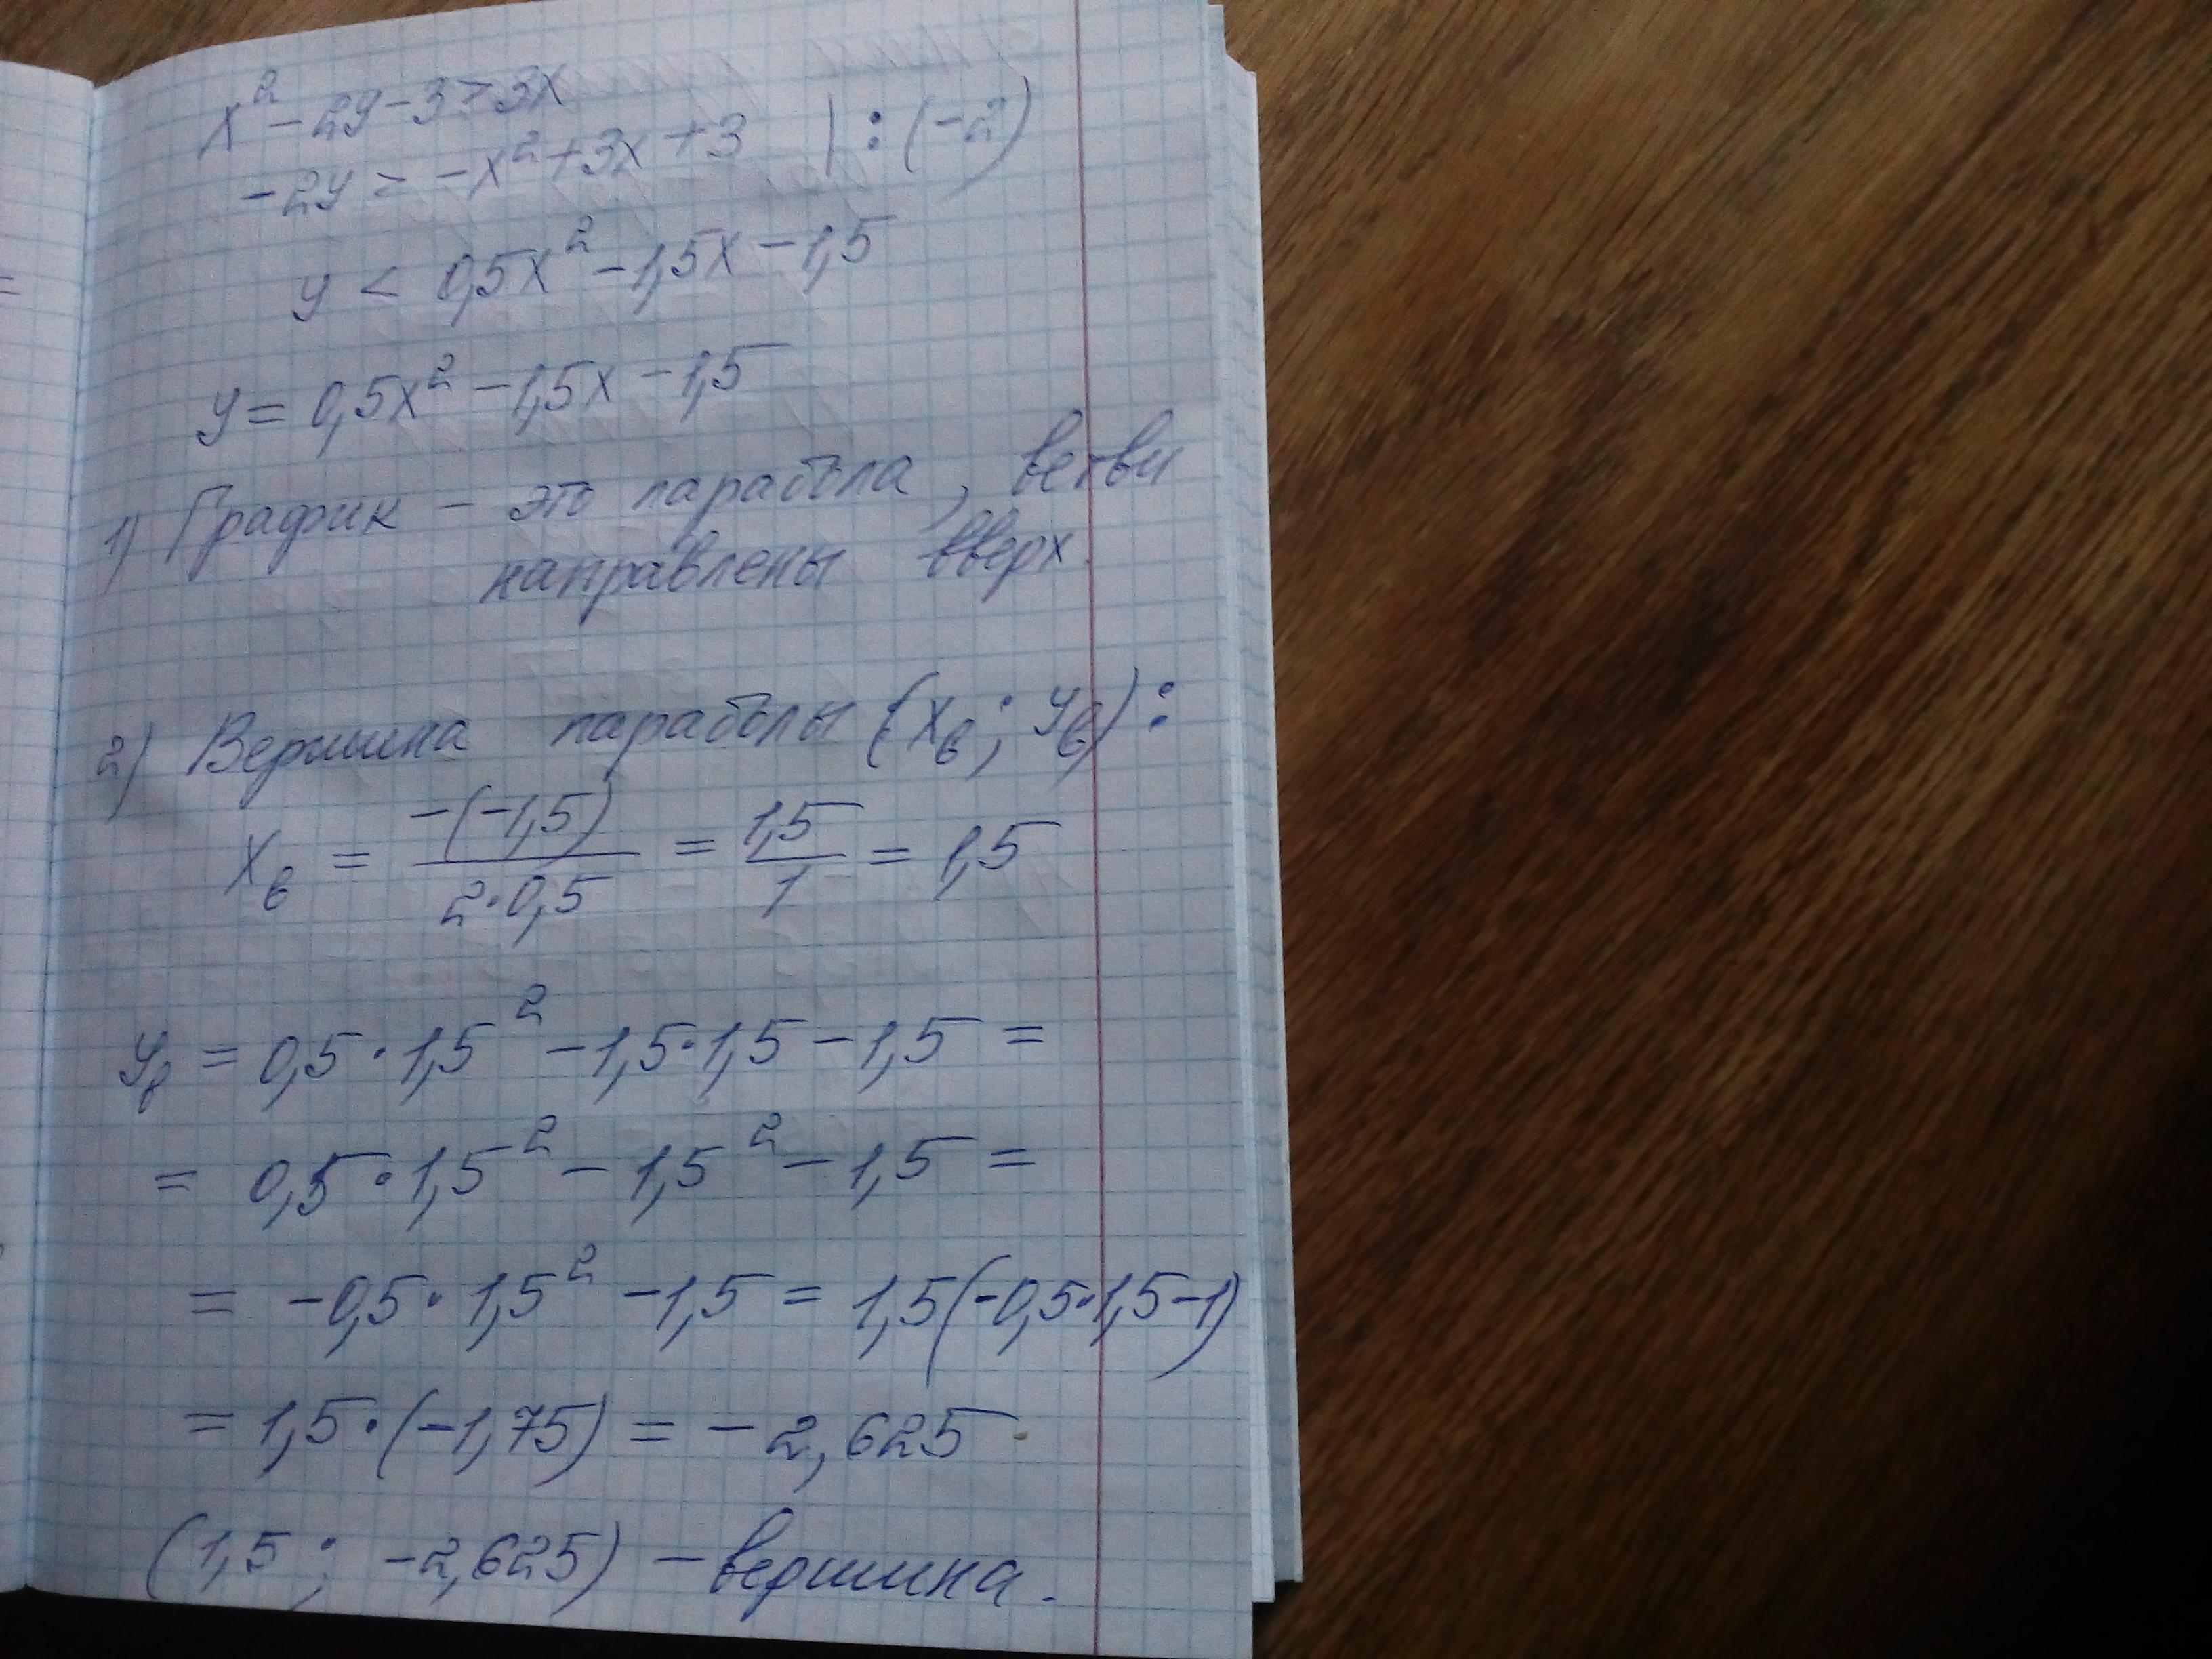 x² - 2y - 3 > 3x
-2y > -x² + 3x + 3 | : (-2)
y < 0,5x² - 1,5x - 1,5
y = 0,5x² - 1,5x - 1,5
1) График - это парабола, ветви
направлены вверх.
2) Вершина параболы (xв; yв):
xв = -(-1,5) / 2·0,5 = 1,5 / 1 = 1,5
yв = 0,5·1,5² - 1,5·1,5 - 1,5 =
= 0,5·1,5² - 1,5² - 1,5 =
= -0,5·1,5² - 1,5 = 1,5(-0,5·1,5-1)
= 1,5·(-1,75) = -2,625
(1,5; -2,625) - вершина.